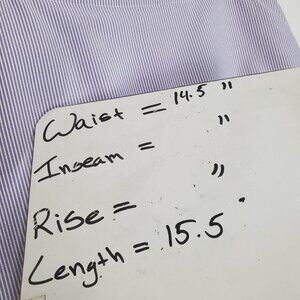 Waist = 14.5 "
Inseam = "
Rise = "
Length = 15.5 "